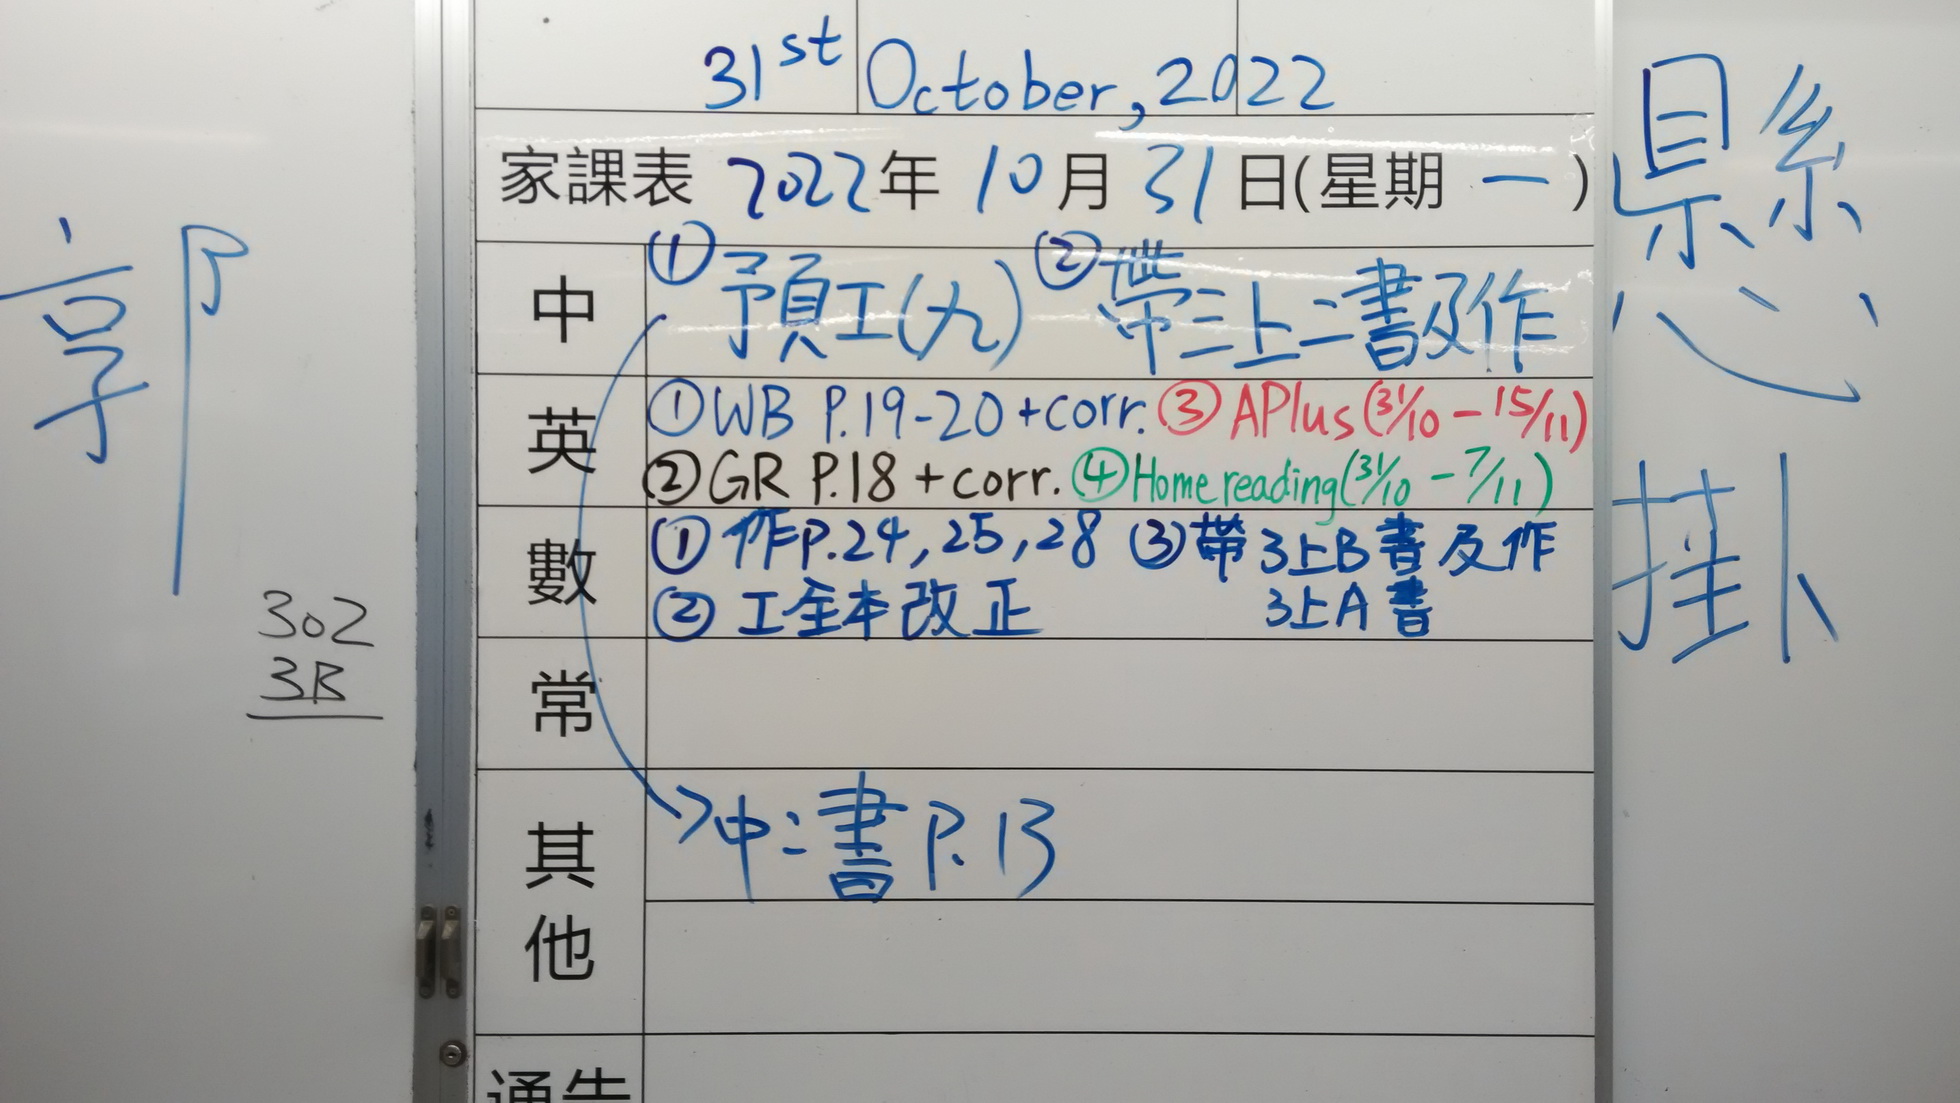 31st October, 2022
家課表 2022年 10月 31日(星期 一 )
中 ① 預工(九) ② 帶三上二書及作
英 ①WB P.19-20 +corr. ③ APlus(31/10 - 15/11)
②GR P.18 + corr. ④Home reading(31/10 - 7/11)
數 ① 作P.24, 25, 28 ③帶 3上B 書及作
② 工全本改正 3上A 書
常
其他 →中:書 P.13
通告
郭
302
3B
懸
掛